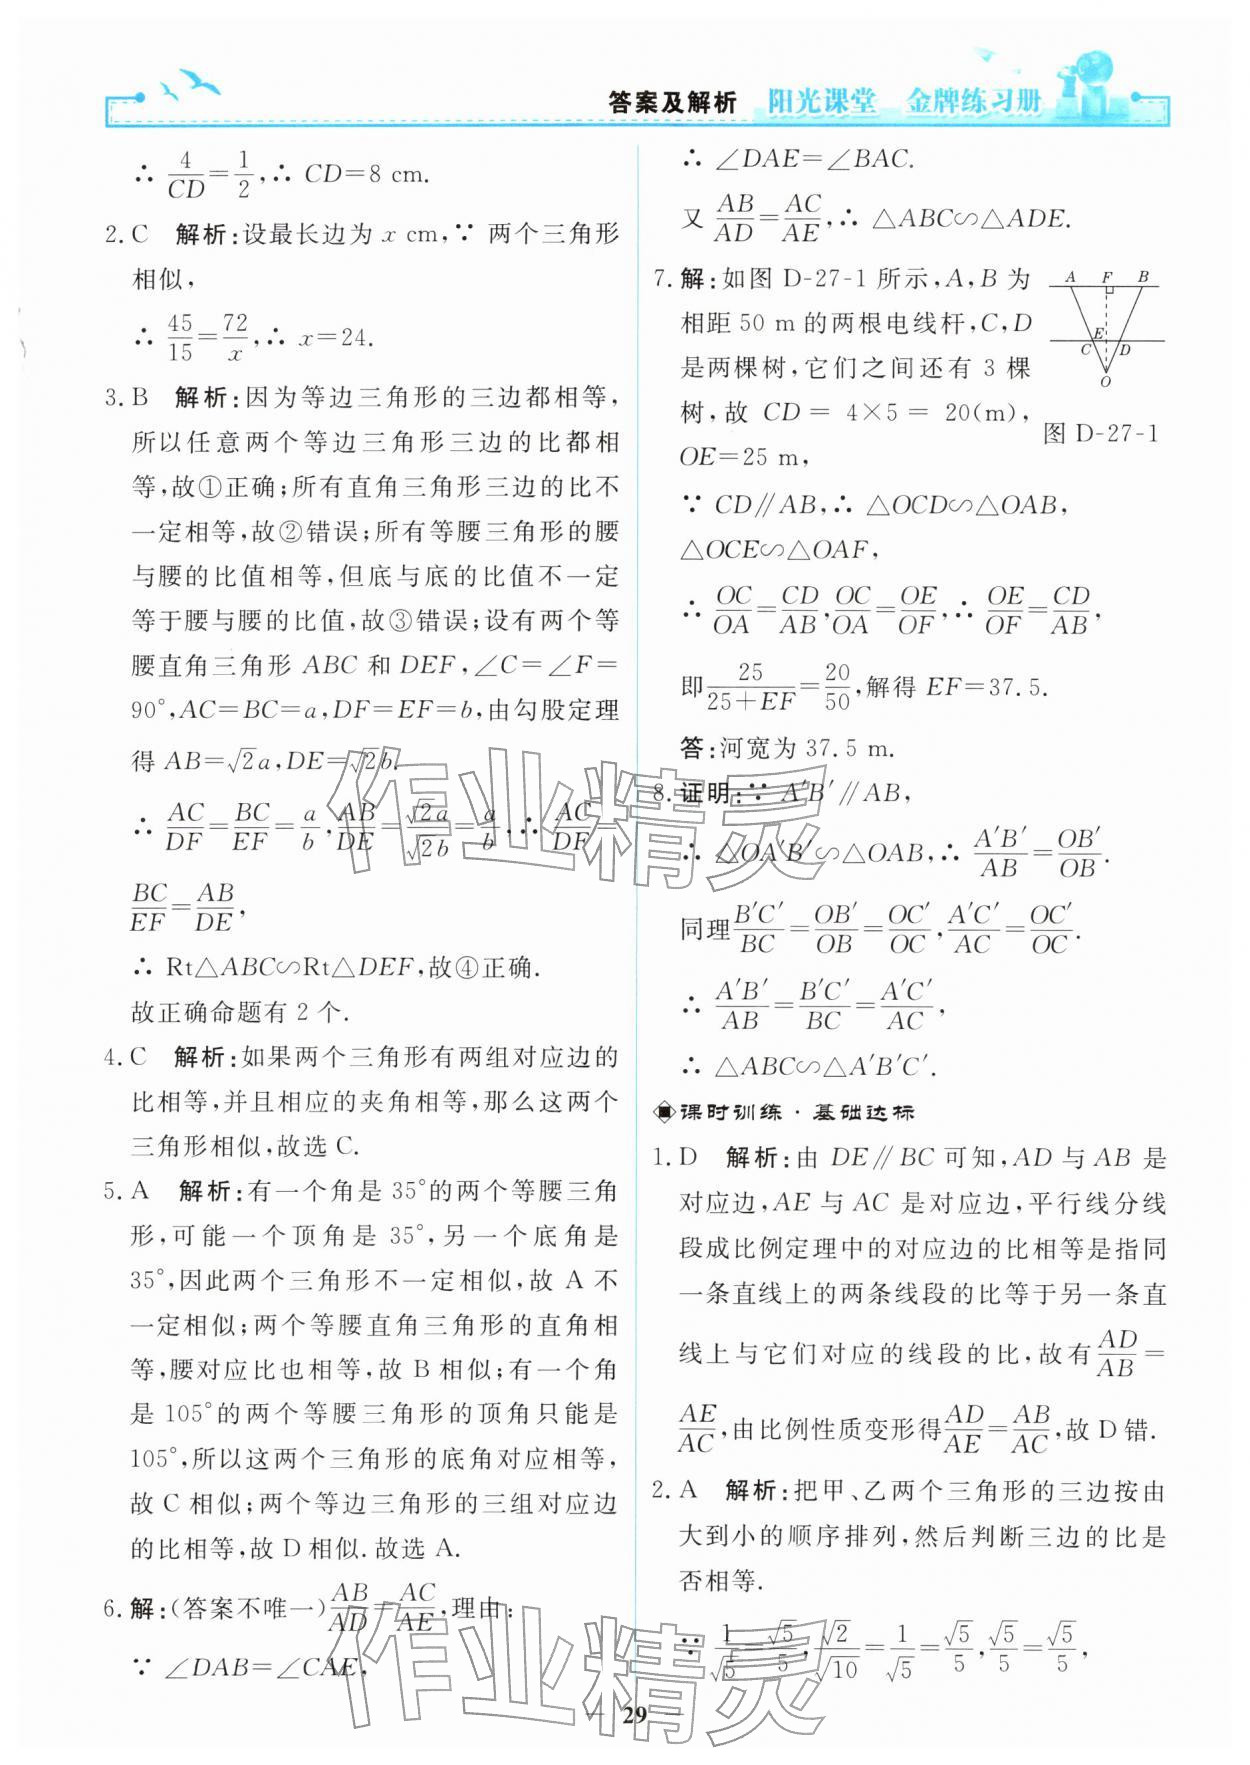 答案及解析 阳光课堂 金牌练习册
∴ 4/CD=1/2,∴ CD=8 cm.
2. C 解析:设最长边为 x cm,∵ 两个三角形
相似,
∴ 45/15=72/x,∴ x=24.
3. B 解析:因为等边三角形的三边都相等,
所以任意两个等边三角形三边的比都相
等,故①正确;所有直角三角形三边的比不
一定相等,故②错误;所有等腰三角形的腰
与腰的比值相等,但底与底的比值不一定
等于腰与腰的比值,故③错误;设有两个等
腰直角三角形 ABC 和 DEF,∠C=∠F=
90°,AC=BC=a,DF=EF=b,由勾股定理
得 AB=√2a,DE=√2b.
∴ AC/DF=BC/EF=a/b,AB/DE=√2a/√2b=a/b,∴ AC/DF=
BC/EF=AB/DE,
∴ Rt△ABC∽Rt△DEF,故④正确.
故正确命题有 2 个.
4. C 解析:如果两个三角形有两组对应边的
比相等,并且相应的夹角相等,那么这两个
三角形相似,故选 C.
5. A 解析:有一个角是 35°的两个等腰三角
形,可能一个顶角是 35°,另一个底角是
35°,因此两个三角形不一定相似,故 A 不
一定相似;两个等腰直角三角形的直角相
等,腰对应比也相等,故 B 相似;有一个角
是 105°的两个等腰三角形的顶角只能是
105°,所以这两个三角形的底角对应相等,
故 C 相似;两个等边三角形的三组对应边
的比相等,故 D 相似.故选 A.
6. 解:(答案不唯一)AB/AD=AC/AE,理由:
∵ ∠DAB=∠CAE,
∴ ∠DAE=∠BAC.
又 AB/AD=AC/AE,∴ △ABC∽△ADE.
7. 解:如图 D-27-1 所示,A,B 为
相距 50 m 的两根电线杆,C,D
是两棵树,它们之间还有 3 棵
树,故 CD = 4×5 = 20(m),
OE=25 m,
A F B
E
C D
O
图 D-27-1
∵ CD∥AB,∴ △OCD∽△OAB,
△OCE∽△OAF,
∴ OC/OA=CD/AB,OC/OA=OE/OF,∴ OE/OF=CD/AB,
即25/(25+EF)=20/50,解得 EF=37.5.
答:河宽为 37.5 m.
8. 证明:∵ A′B′∥AB,
∴ △OA′B′∽△OAB,∴ A′B′/AB=OB′/OB.
同理B′C′/BC=OB′/OB=OC′/OC,A′C′/AC=OC′/OC.
∴ A′B′/AB=B′C′/BC=A′C′/AC,
∴ △ABC∽△A′B′C′.
课时训练·基础达标
1. D 解析:由 DE∥BC 可知,AD 与 AB 是
对应边,AE 与 AC 是对应边,平行线分线
段成比例定理中的对应边的比相等是指同
一条直线上的两条线段的比等于另一条直
线上与它们对应的线段的比,故有AD/AB=
AE/AC,由比例性质变形得AD/AE=AB/AC,故 D 错.
2. A 解析:把甲、乙两个三角形的三边按由
大到小的顺序排列,然后判断三边的比是
否相等.
∵ 1/√5=√5/5,√2/√10=1/√5=√5/5,√5/5=√5/5,
29
作业精灵
作业精灵